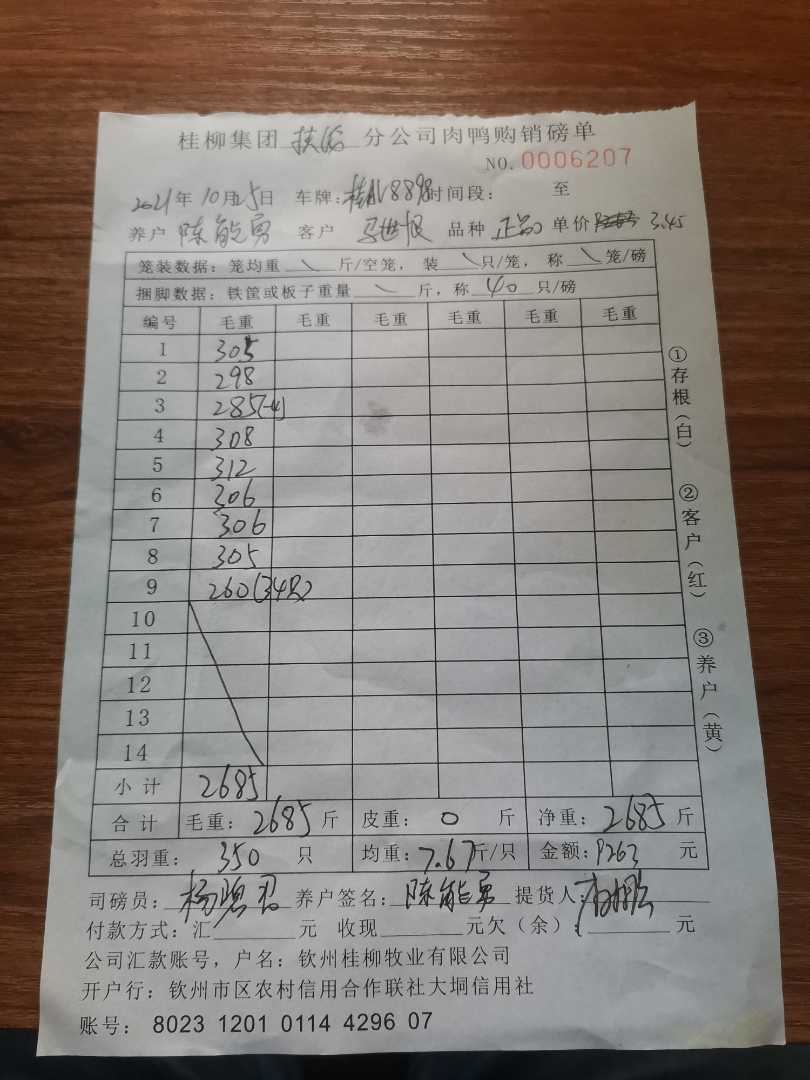 桂柳集团 扶绥 分公司肉鸭购销磅单
NO. 0006207
2021年10月15日 车牌: 桂AV8898 时间段: 至
养户 陈能勇 客户 品种 正品 单价 3.45
笼装数据: 笼均重 \ 斤/空笼, 装 \ 只/笼, 称 \ 笼/磅
捆脚数据: 铁筐或板子重量 \ 斤, 称 40 只/磅
编号 毛重 毛重 毛重 毛重 毛重
1 305
2 298
3 285(-4)
4 308
5 312
6 306
7 306
8 305
9 260(34只)
10
11
12
13
14
小计 2685
合计 毛重: 2685 斤 皮重: 0 斤 净重: 2685 斤
总羽重: 350 只 均重: 7.67 斤/只 金额: 9263 元
司磅员: 养户签名: 陈能勇 提货人:
付款方式: 汇 元 收现 元欠(余): 元
公司汇款账号, 户名: 钦州桂柳牧业有限公司
开户行: 钦州市区农村信用合作联社大垌信用社
账号: 8023 1201 0114 4296 07
①存根(白)
②客户(红)
③养户(黄)